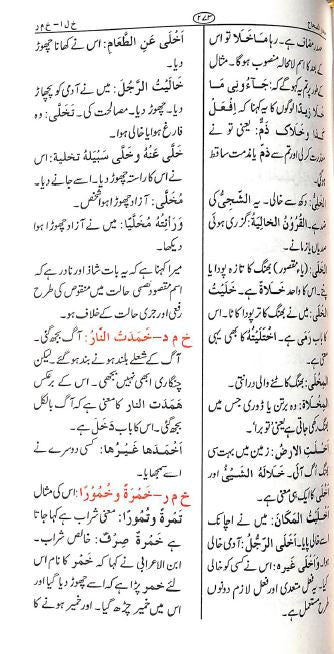 خ ل ا - خ م ر
۲۷۳
صدر مضاف ہے۔ رہا ما خلا تو اس
کے بعد کا اسم لا محالہ منصوب ہوگا۔ مثال
کے طور پر تم یہ کہو گے کہ: جَاءُونِی مَا
خَلَا زَیْدًا لوگوں کا یہ کہنا کہ اِفْعَلْ
کَذَا وَخَلَاکَ ذَمٌّ: یعنی تو نے
معذرت کرلی اور تم سے ذمّ یا مذمت ساقط
الخَلِیُّ: دکھ سے خالی۔ یہ الشَّجِیُّ کی
ضد ہے۔ القُرُونُ الخَالِیَةُ: گزری ہوئی
الخَلَی: (یاء مقصور) بھنگ کا تازہ پودا یا
اس کا واحد خَلَاةٌ ہے۔ خَلَیْتُ
میں نے بھنگ کا تر پودا کاٹا۔ اس
کا باب رَمَی ہے۔ اخْتَلَیْتُہ کا بھی یہی
المِخْلَی: بھنگ کاٹنے والی درانتی۔
المِخْلَاةُ: وہ برتن یا ڈوری جس میں
بھنگ رکھی جاتی ہے یعنی توبرا۔
أَخْلَتِ الأَرْضُ: زمین میں بہت سی
بھنگ اُگ آئی۔ خَلَا لَهُ الشَّیْءُ اور
أَخْلَی کا ایک ہی معنی ہے۔
أَخْلَیْتُ المَکَانَ: میں نے اچانک
اسے خالی پایا۔ أَخْلَی الرَّجُلُ: آدمی خالی
ہوا۔ أَخْلَی غَیْرَہ: اس نے کسی کو خالی
کیا۔ یہ فعل متعدی اور فعل لازم دونوں
طرح مستعمل ہے۔
أَخْلَی عَنِ الطَّعَامِ: اس نے کھانا چھوڑ
دیا۔
خَالَیْتُ الرَّجُلَ: میں نے آدمی کو چھوڑ
دیا۔ مصالحت کی۔ تَخَلَّی: وہ
فارغ ہوا یا خالی ہوا۔
خَلَّی عَنْهُ وَخَلَّی سَبِیْلَهُ تخلیة: اس
نے اس کا راستہ چھوڑ دیا۔ اسے جانے دیا۔
مُخَلَّی: آزاد چھوڑا ہوا شخص۔
وَرَأَیْتُهُ مُخَلَّیًا: میں نے آزاد چھوڑا ہوا
دیکھا۔
میرا کہنا ہے کہ یہ بات شاذ اور نادر ہے کہ
اسم مقصور نصبی حالت میں منقوص کی طرح
رفعی اور جری حالت کے خلاف ہو۔
خ م د - خَمَدَتْ النَّارُ: آگ بجھ گئی۔
آگ کے شعلے بلند ہونے بند ہو گئے۔ لیکن
چنگاری ابھی نہیں بجھی۔ اس کے برعکس
هَمَدَتِ النَّار کا معنی ہے کہ آگ بالکل
بجھ گئی۔ اس کا باب دَخَلَ ہے۔
أَخْمَدَهَا غَیْرُهَا: کسی دوسرے نے
اسے بجھایا۔
خ م ر - خَمْرَةٌ وَخُمُورًا: اس کی مثال
تَمْرَةٌ وَتُمُورًا: معنی شراب ہے کہا جاتا
ہے خَمْرَةٌ صِرْفٌ: خالص شراب۔
ابن الاعرابی نے کہا کہ خَمْر کا نام اس
لئے خمر پڑا ہے کہ اسے چھوڑ دیا گیا اور
اس میں خمیر چڑھ گیا۔ اور خمیر ہونے کا